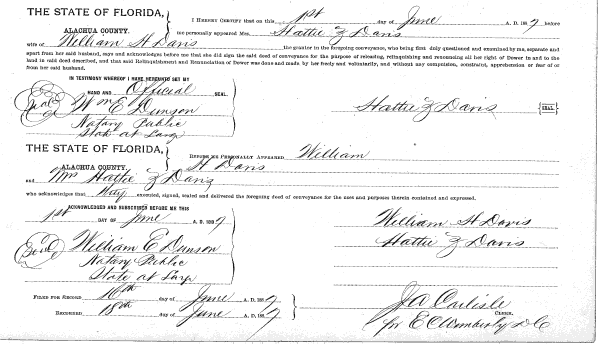 THE STATE OF FLORIDA,
ALACHUA COUNTY.
I HEREBY CERTIFY that on this 1st day of June A. D. 1887 before
me personally appeared Mrs. Hattie Z Davis
wife of William H Davis the grantor in the foregoing conveyance, who being first duly questioned and examined by me, separate and
apart from her said husband, says and acknowledges before me that she did sign the said deed of conveyance for the purpose of releasing, relinquishing and renouncing all her right of Dower in and to the
land in said deed described, and that said Relinquishment and Renunciation of Dower was done and made by her freely and voluntarily, and without any compulsion, constraint, apprehension or fear of or
from her said husband.
IN TESTIMONY WHEREOF I HAVE HEREUNTO SET MY
HAND AND Official SEAL.
Seal Wm E Dunson
Notary Public
State at Larg
Hattie Z Davis SEAL
THE STATE OF FLORIDA,
ALACHUA COUNTY.
BEFORE ME PERSONALLY APPEARED William
H Davis
and Mrs Hattie Z Davis
who acknowledges that they executed, signed, sealed and delivered the foregoing deed of conveyance for the uses and purposes therein contained and expressed.
ACKNOWLEDGED AND SUBSCRIBED BEFORE ME THIS
1st DAY OF June A. D. 1887
Seal William E Dunson
Notary Public
State at Larg
William H Davis
Hattie Z Davis
FILED FOR RECORD 16th day of June A. D. 1887
RECORDED 18th day of June A. D. 1887
J A Carlisle
CLERK.
for E C Wimberly D C